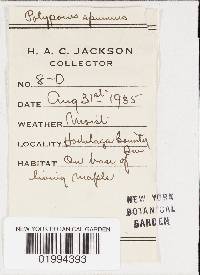 Polyporus spumeus
H. A. C. JACKSON
COLLECTOR
NO. 8-D
DATE Aug 31st 1935
WEATHER Moist
LOCALITY Hochelaga County
Que
HABITAT On base of
living maple
NEW YORK
BOTANICAL
GARDEN
NEW YORK BOTANICAL GARDEN
01994393